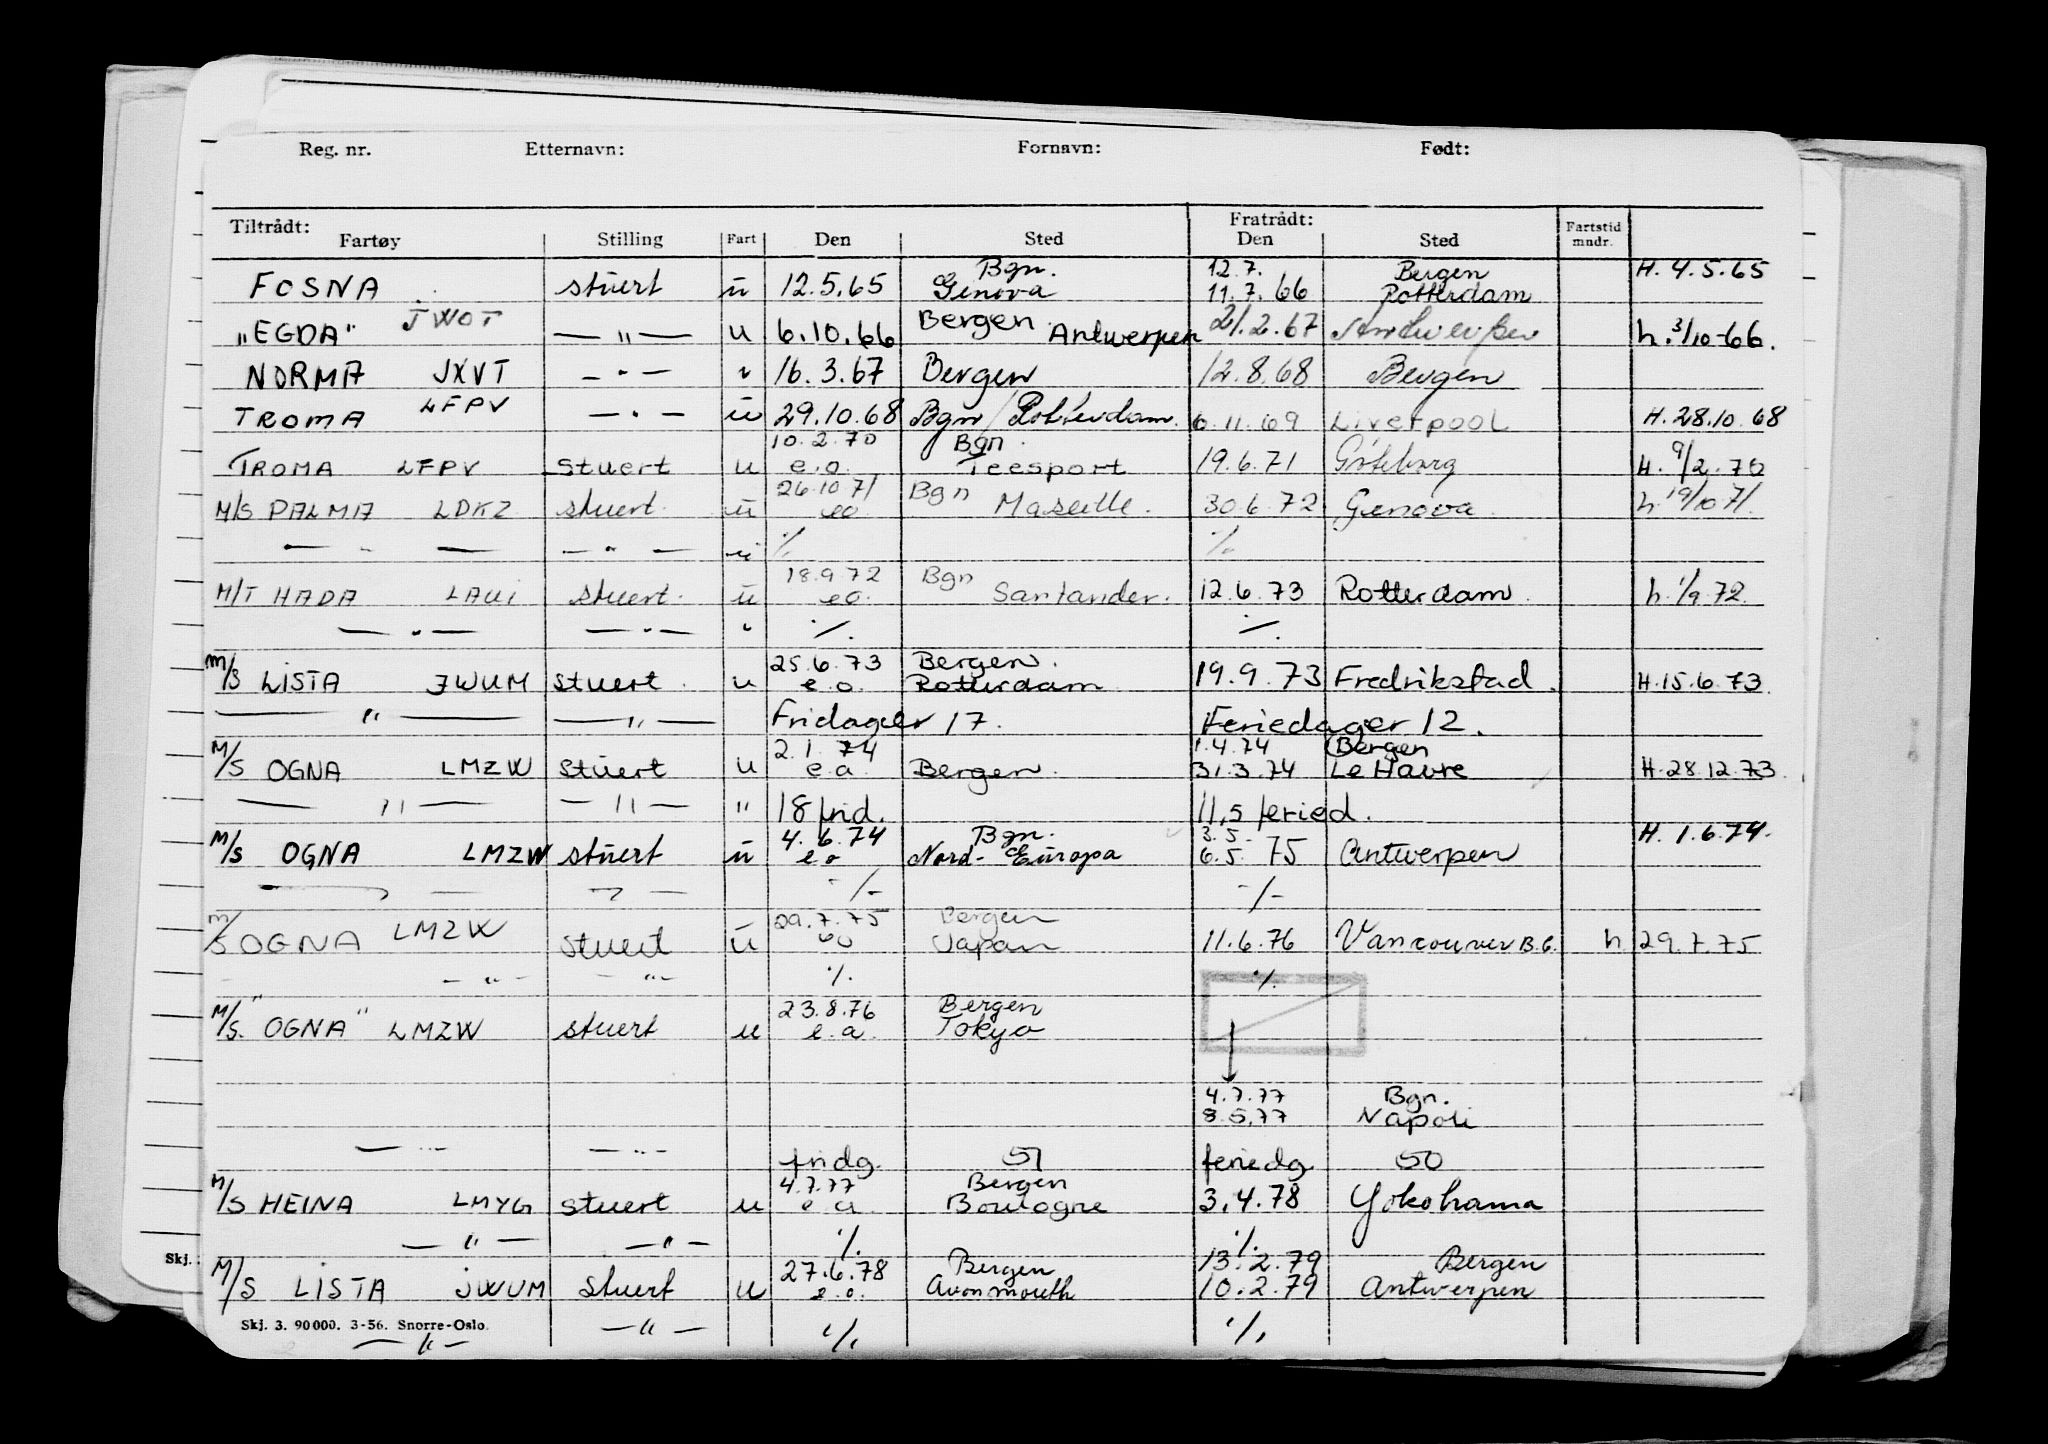 Reg. nr. Etternavn: Fornavn: Født:
Tiltrådt: Fratrådt:
Fartøy Stilling Fart Den Sted Den Sted Fartstid mndr.
Bgn. 12.7. Bergen H. 4.5.65
FOSNA stuert u 12.5.65 Genova 11.7.66 Rotterdam
"EGDA" JWOT — " — u 6.10.66 Bergen Antwerpen 21.2.67 Antwerpen h. 3/10-66.
NORMA JXVT — " — " 16.3.67 Bergen 12.8.68 Bergen
TROMA LFPV — " — u 29.10.68 Bgn / Rotterdam 6.11.69 Liverpool H. 28.10.68
10.2.70 Bgn
TROMA LFPV stuert u e.o. Teesport 19.6.71 Göteborg H. 9/2.70
26.10.71 Bgn
M/S PALMA LDKZ stuert u eo Maseille. 30.6.72 Genova h. 19/10 71.
— " — — " — u ./. ./.
18.9.72 Bgn
M/T HADA LAUI stuert. u eo. Santander. 12.6.73 Rotterdam. h. 1/9.72.
— " — — " — " ./. ./.
25.6.73 Bergen.
M/S LISTA JWUM stuert. u e.o. Rotterdam 19.9.73 Fredrikstad. H. 15.6.73.
— " — — " — Fridager 17. Feriedager 12.
2.1.74 1.4.74 Bergen
M/S OGNA LMZW stuert u e.a. Bergen. 31.3.74 Le Havre H. 28.12.73.
— " — — " — " 18 frid. 11,5 feried.
4.6.74 Bgn. 3.5. H. 1.6.74.
M/S OGNA LMZW stuert u e.o Nord-Europa 6.5.75 Antwerpen
-/- -/-
29.7.75 Bergen
M/S OGNA LMZW stuert u eo Japan 11.6.76 Vancouver B.C. h 29.7.75
— " — — " — ./. ./.
23.8.76 Bergen
M/S. "OGNA" LMZW stuert u e.a. Tokyo
4.7.77 Bgn.
8.5.77 Napoli
— " — — " — fridg. 51 feriedg. 50
4.7.77 Bergen
M/S HEINA LMYG stuert u e.a. Boulogne 3.4.78 Yokohama
— " — — " — ./. ./.
27.6.78 Bergen 13.2.79 Bergen
M/S LISTA JWUM stuert u e.o. Avonmouth 10.2.79 Antwerpen
Skj. 3. 90000. 3-56. Snorre-Oslo.
— " — — " — ./. ./.
Skj.